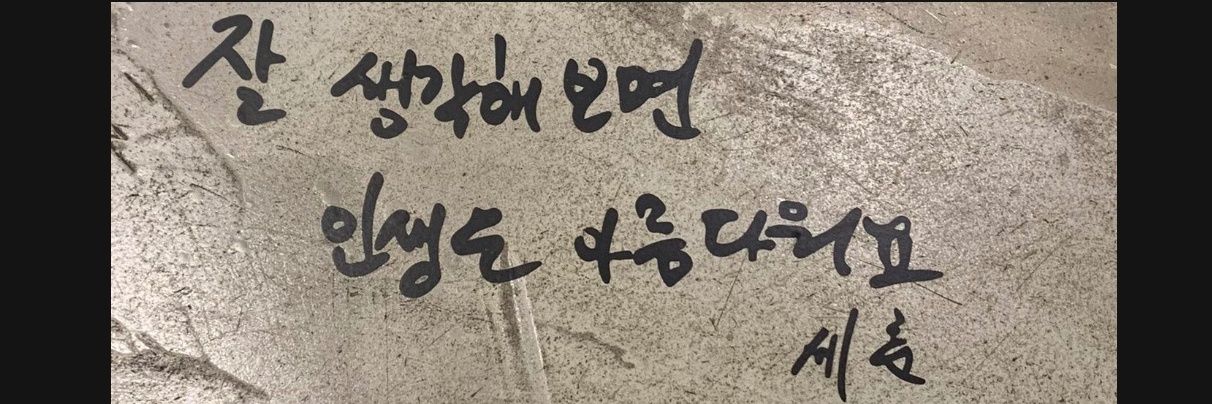 잘 생각해 보면
인생은 아름다워요